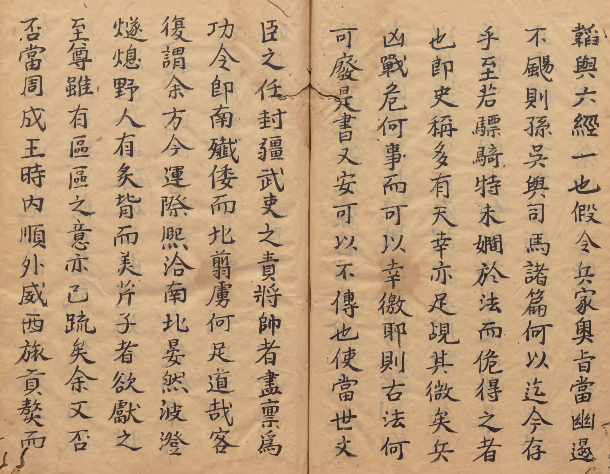 韜與六經一也假令兵家奧旨當幽遏
不颺則孫吳與司馬諸篇何以迄今存
乎至若驃騎特未嫺於法而佹得之者
也即史稱多有天幸亦足覘其微矣兵
凶戰危何事而可以幸徼耶則古法何
可廢是書又安可以不傳也使當世文
臣之任封疆武吏之責將帥者盡稟為
功令即南殲倭而北翦虜何足道哉客
復謂余方今運際熙洽南北晏然波澄
燧熄野人有炙背而美芹子者欲獻之
至尊雖有區區之意亦已疏矣余又否
否當周成王時內順外威西旅貢獒而